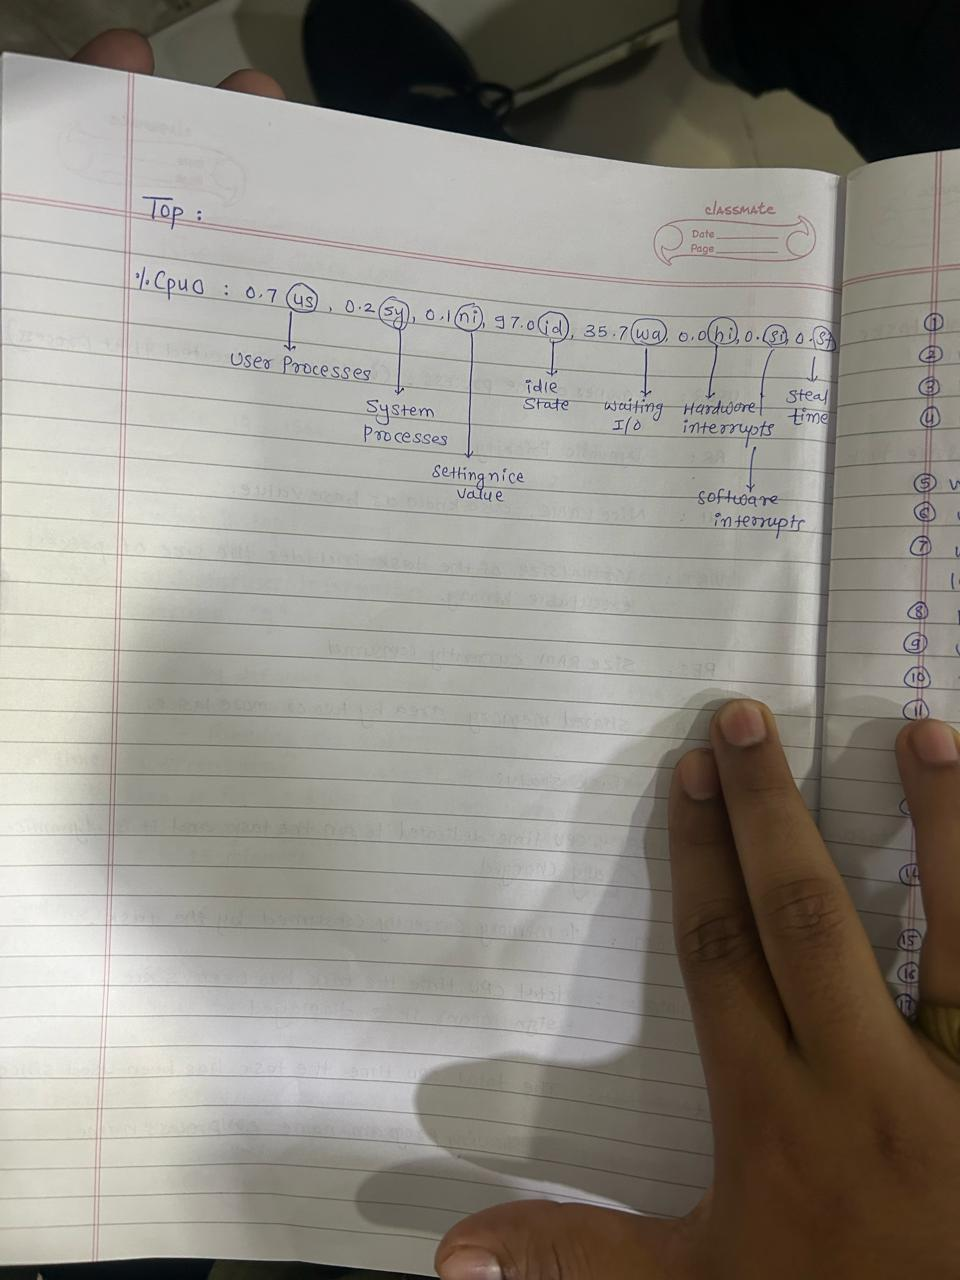 classmate
Date
Page
Top :
%Cpu0 : 0.7 us, 0.2 sy, 0.1 ni, 97.0 id, 35.7 wa, 0.0 hi, 0. si, 0. st
User Processes
System
Processes
setting nice
value
idle
State
waiting
I/O
Hardware
interrupts
software
interrupts
Steal
time
1
2
3
4
5
6
7
8
9
10
11
14
15
16
17